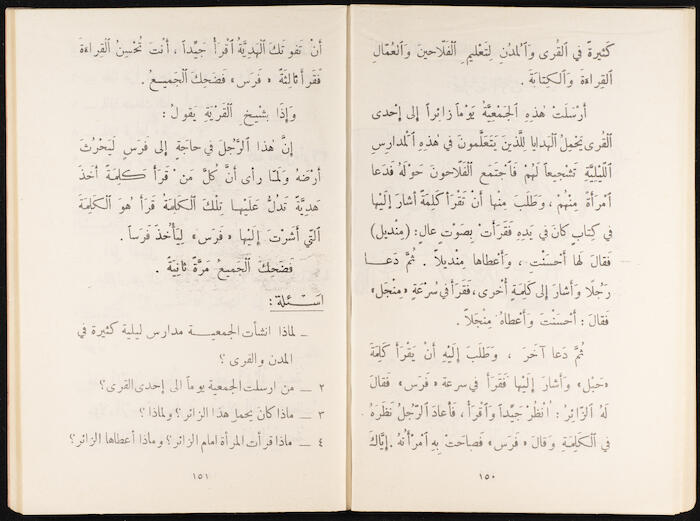 كَثيرَةً في القُرى وَالْمُدُنِ لِتَعْليمِ الْفَلّاحينَ وَالعُمّالِ
القِراءَةَ وَالْكِتابَةَ .
أَرْسَلَتْ هٰذِهِ الْجَمْعِيَّةُ يَوْماً زائِراً إلى إحْدى
القُرى يَحْمِلُ الْهَدايا لِلَّذينَ يَتَعَلَّمونَ في هٰذِهِ الْمَدارِسِ
اللَّيْلِيَّةِ تَشْجيعاً لَهُمْ فَاجْتَمَعَ الْفَلّاحونَ حَوْلَهُ فَدَعا
امْرَأَةً مِنْهُمْ ، وَطَلَبَ مِنْها أنْ تَقْرَأَ كَلِمَةً أشارَ إلَيْها
في كِتابٍ كانَ في يَدِهِ فَقَرَأَتْ بِصَوْتٍ عالٍ : (مِنْديل)
فَقالَ لَها أحْسَنْتِ ، وَأعْطاها مِنْديلاً . ثُمَّ دَعا
رَجُلًا وَأشارَ إلى كَلِمَةٍ أُخْرى ، فَقَرَأَ في سُرْعَةٍ «مِنْجَل»
فَقالَ : أحْسَنْتَ وَأعْطاهُ مِنْجَلاً .
ثُمَّ دَعا آخَرَ ، وَطَلَبَ إلَيْهِ أنْ يَقْرَأَ كَلِمَةَ
«حَبْل» وَأشارَ إلَيْها فَقَرَأَ في سرعة «فَرَس» فَقالَ
لَهُ الزّائِرُ : اُنْظُرْ جَيِّداً وَاقْرَأْ ، فَأعادَ الرَّجُلُ نَظَرَهُ
في الْكَلِمَةِ وَقالَ «فَرَس» فَصاحَتْ بِهِ امْرَأَتُهُ . إيّاكَ
١٥٠
أنْ تَفوتَكَ الْهَدِيَّةُ اقْرَأْ جَيِّداً ، أنْتَ تُحْسِنُ القِراءَةَ
فَقَرَأَ ثالِثَةً « فَرَس » فَضَحِكَ الْجَميعُ .
وَإذَا بِشَيْخِ الْقَرْيَةِ يَقولُ :
إنَّ هٰذا الرَّجُلَ في حاجَةٍ إلى فَرَسٍ لِيَحْرُثَ
أرْضَهُ وَلَمّا رأى أنَّ كُلَّ مَنْ قَرَأَ كَلِمَةً أخَذَ
هَدِيَّةً تَدُلُّ عَلَيْها تِلْكَ الْكَلِمَةُ قَرَأَ هُوَ الْكَلِمَةَ
الَّتي أشَرْتَ إلَيْها «فَرَس» لِيَأْخُذَ فَرَساً .
فَضَحِكَ الْجَميعُ مَرَّةً ثانِيَةً .
اسئلة :
_ لماذا انشأت الجمعية مدارس ليلية كثيرة في
المدن والقرى ؟
٢ _ من ارسلت الجمعية يوماً الى إحدى القرى ؟
٣ _ ماذا كان يحمل هذا الزائر ؟ ولماذا ؟
٤ _ ماذا قرأت المرأة امام الزائر ؟ وماذا أعطاها الزائر ؟
١٥١